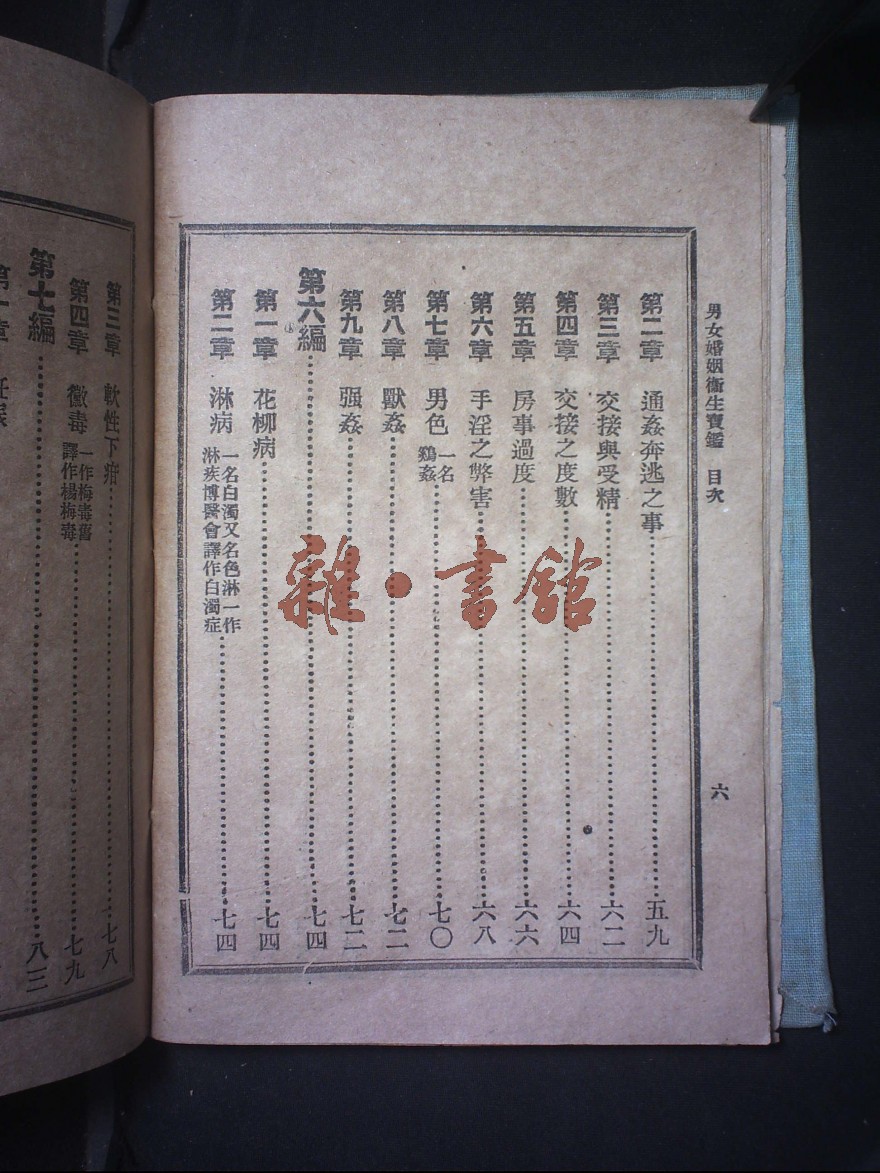 男女婚姻衞生寶鑑 目次 六
第二章 通姦奔逃之事 五九
第三章 交接與受精 六二
第四章 交接之度數 六四
第五章 房事過度 六六
第六章 手淫之弊害 六八
第七章 男色 一名鷄姦 七〇
第八章 獸姦 七二
第九章 强姦 七二
第六編 七四
第一章 花柳病 七四
第二章 淋病 一名白濁又名色淋一作淋疾博醫會譯作白濁症 七四
第三章 軟性下疳 七八
第四章 黴毒 一作梅毒舊譯作楊梅毒 七九
第七編 八三
第一章
雜·書館